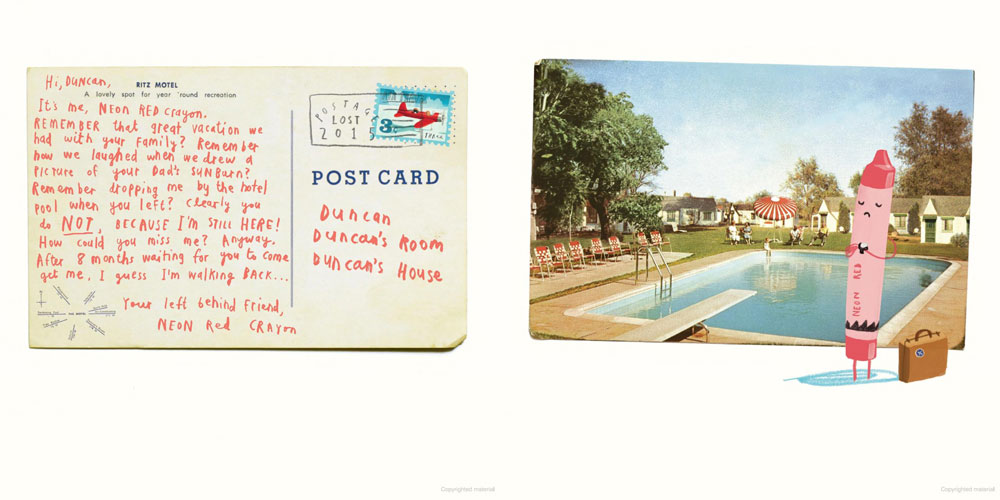 Hi, DUNCAN,
RITZ MOTEL
A lovely spot for year 'round recreation
It's me, NEON RED crayon.
REMEMBER that great vacation we
had with your Family? Remember
how we laughed when we drew a
picture of your Dad's SUNBurn?
Remember dropping me by the hotel
pool when you left? Clearly you
do NOT, BECAUSE I'M STILL HERE!
How could you miss me? Anyway.
After 8 months waiting for you to come
get me, I guess I'm walking BACK...
Your left behind Friend,
NEON Red CRAYon
THE MOTEL
POSTAGE
LOST
201
3
POST CARD
Duncan
Duncan's Room
Duncan's House
NEON RED
Copyrighted material
Copyrighted material